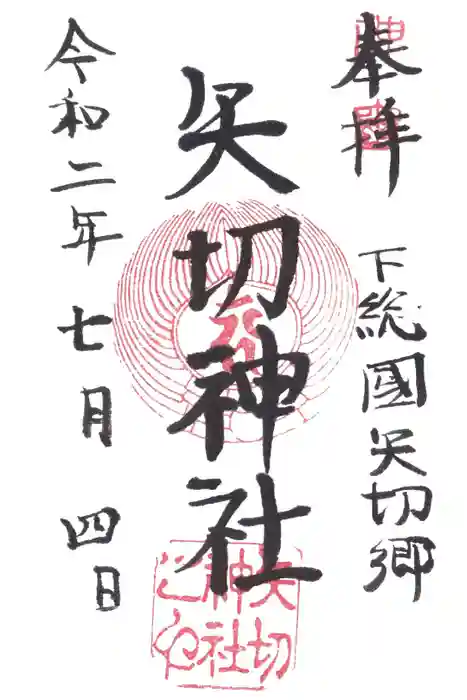 奉拝
下総國矢切郷
矢切神社
令和二年七月四日
矢切
神社